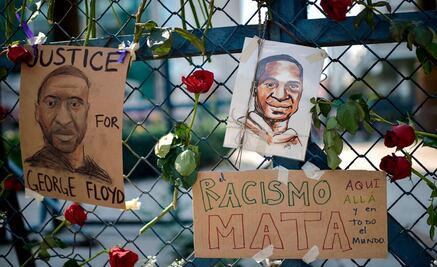 JUSTICE
FOR
GEORGE FLOYD
El RACISMO
MATA
AQUI
ALLA
y en
TODO el
MUNDO.